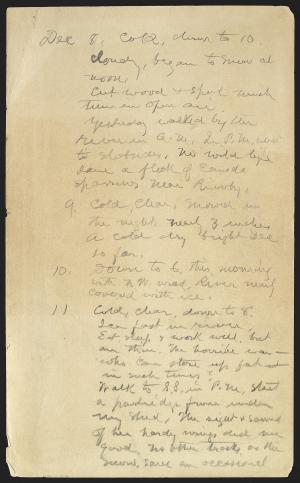 Dec 8, Cold, down to 10.
cloudy, began to snow at
noon.
Cut wood & spent much
time in open air.
Yesterday walked by the
river in A.M. In P.M. went
to Slabsides, No wild life
save a flock of Canada
sparrows near Riverby.
9. Cold, clear, snowed in
the night nearly 3 inches
A cold dry bright Dec
so far.
10. Down to 6, this morning
with N.W. wind, River nearly
covered with ice.
11 Cold, clear, down to 8.
Ice fast in river,
Eat, sleep, & work well, but
am thin. The horrible war—
who can store up fat
in such times?
Walk to S.S. in P.M, start
a partridge from under
my shed, The sight & sound
of her hardy wings did me
good, No other tracks on the
snow, save an occasional